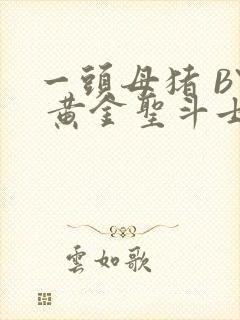 一頭母猪 BY
黄金聖斗士
雲如歌